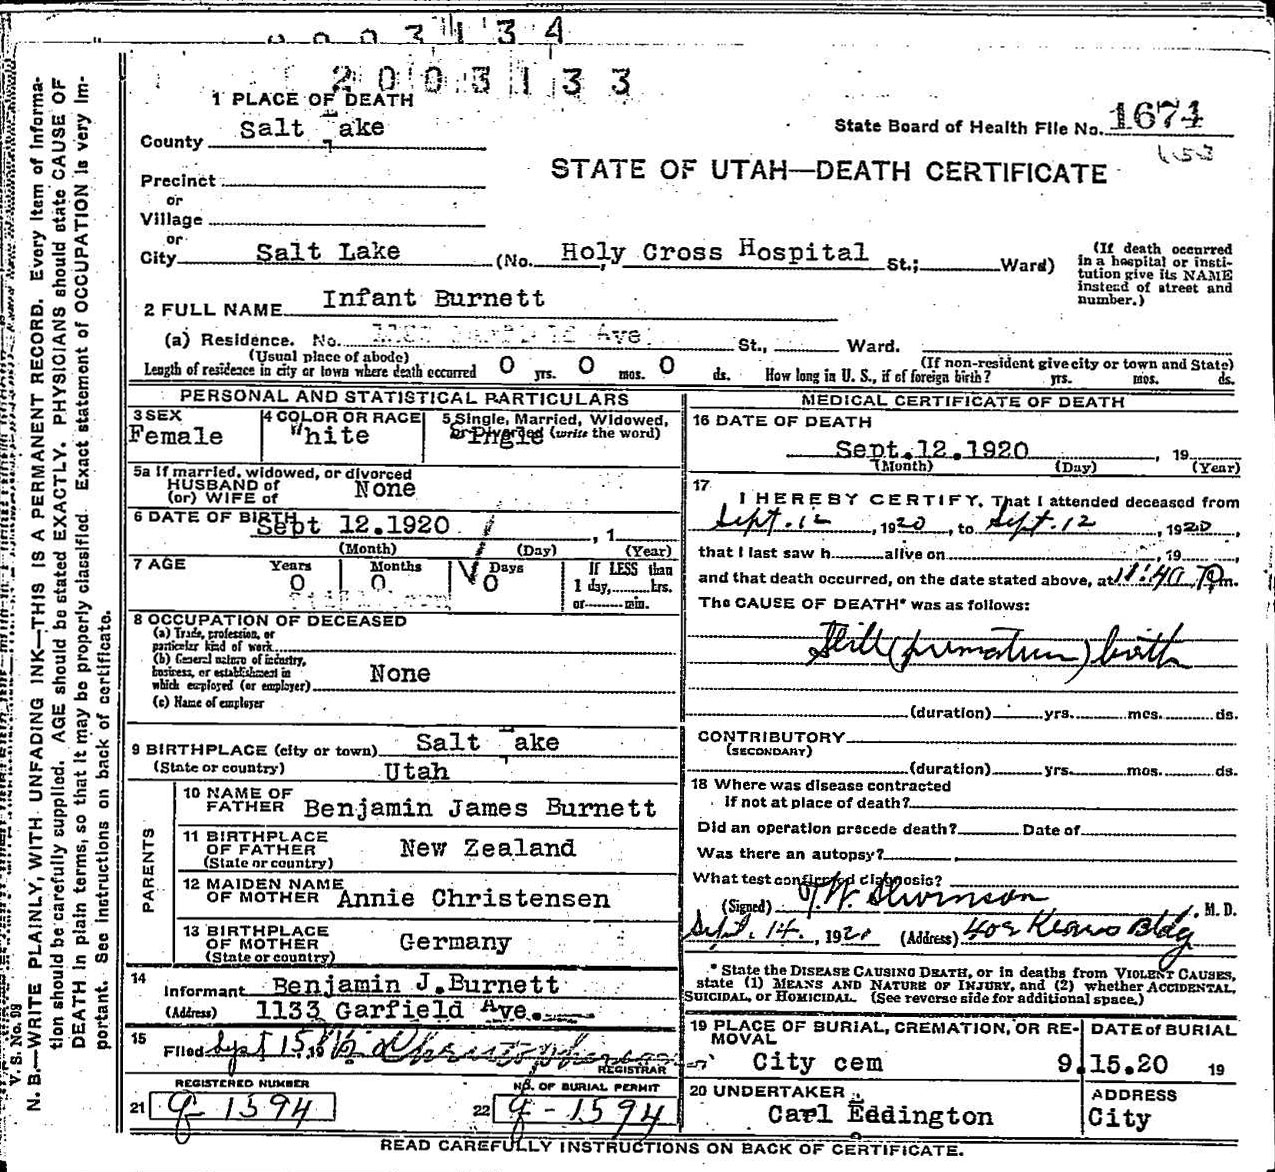 0003134
2003133
1 PLACE OF DEATH
County Salt Lake
State Board of Health File No. 1674
153
STATE OF UTAH—DEATH CERTIFICATE
Precinct
or
Village
or
City Salt Lake (No. Holy Cross Hospital St.; Ward)
(If death occurred in a hospital or institution give its NAME instead of street and number.)
2 FULL NAME Infant Burnett
(a) Residence. No. Ave. St., Ward.
(Usual place of abode) (If non-resident give city or town and State)
Length of residence in city or town where death occurred 0 yrs. 0 mos. 0 ds. How long in U. S., if of foreign birth? yrs. mos. ds.
PERSONAL AND STATISTICAL PARTICULARS
3 SEX Female
4 COLOR OR RACE White
5 Single, Married, Widowed, or Divorced (write the word) Single
5a If married, widowed, or divorced
HUSBAND of
(or) WIFE of None
6 DATE OF BIRTH Sept 12.1920 , 1
(Month) (Day) (Year)
7 AGE Years 0 Months 0 Days 0 If LESS than 1 day, hrs. or min.
8 OCCUPATION OF DECEASED
(a) Trade, profession, or particular kind of work
(b) General nature of industry, business, or establishment in which employed (or employer) None
(c) Name of employer
9 BIRTHPLACE (city or town) Salt Lake
(State or country) Utah
PARENTS
10 NAME OF FATHER Benjamin James Burnett
11 BIRTHPLACE OF FATHER (State or country) New Zealand
12 MAIDEN NAME OF MOTHER Annie Christensen
13 BIRTHPLACE OF MOTHER (State or country) Germany
14
Informant Benjamin J.Burnett
(Address) 1133 Garfield Ave.
15
Filed Sept 15, 19
REGISTRAR
REGISTERED NUMBER
21 9-1594
NO. OF BURIAL PERMIT
22 9-1594
MEDICAL CERTIFICATE OF DEATH
16 DATE OF DEATH
Sept.12.1920 , 19
(Month) (Day) (Year)
17
I HEREBY CERTIFY, That I attended deceased from
Sept. 12, 1920, to Sept. 12, 1920,
that I last saw h alive on , 19
and that death occurred, on the date stated above, at 11:40 P.m.
The CAUSE OF DEATH* was as follows:
Still (premature) birth
(duration) yrs. mos. ds.
CONTRIBUTORY
(SECONDARY)
(duration) yrs. mos. ds.
18 Where was disease contracted
if not at place of death?
Did an operation precede death? Date of
Was there an autopsy?
What test confirmed diagnosis?
(Signed) T.W. Stevenson, M. D.
Sept. 14, 1920 (Address) 408 Kearns Bldg
* State the DISEASE CAUSING DEATH, or in deaths from VIOLENT CAUSES,
state (1) MEANS AND NATURE OF INJURY, and (2) whether ACCIDENTAL,
SUICIDAL, or HOMICIDAL. (See reverse side for additional space.)
19 PLACE OF BURIAL, CREMATION, OR REMOVAL City cem
DATE of BURIAL 9.15.20 19
20 UNDERTAKER Carl Eddington
ADDRESS City
READ CAREFULLY INSTRUCTIONS ON BACK OF CERTIFICATE.
V. S. No. 98
N. B.—WRITE PLAINLY, WITH UNFADING INK—THIS IS A PERMANENT RECORD. Every item of informa-
tion should be carefully supplied. AGE should be stated EXACTLY. PHYSICIANS should state CAUSE OF
DEATH in plain terms, so that it may be properly classified. Exact statement of OCCUPATION is very im-
portant. See instructions on back of certificate.